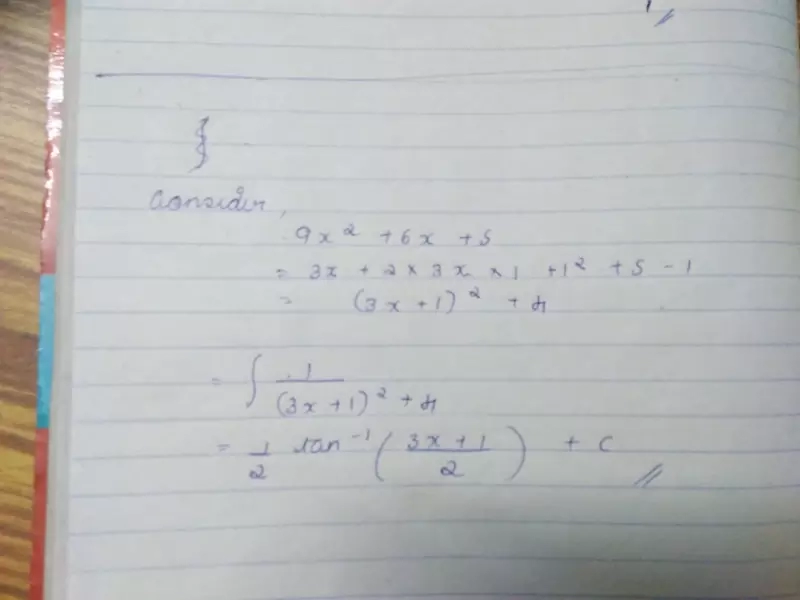 Consider,
9x² + 6x + 5
= 3x + 2 × 3x × 1 + 1² + 5 - 1
= (3x + 1)² + 4
= ∫ 1/((3x + 1)² + 4)
= 1/2 tan⁻¹ ((3x + 1)/2) + C